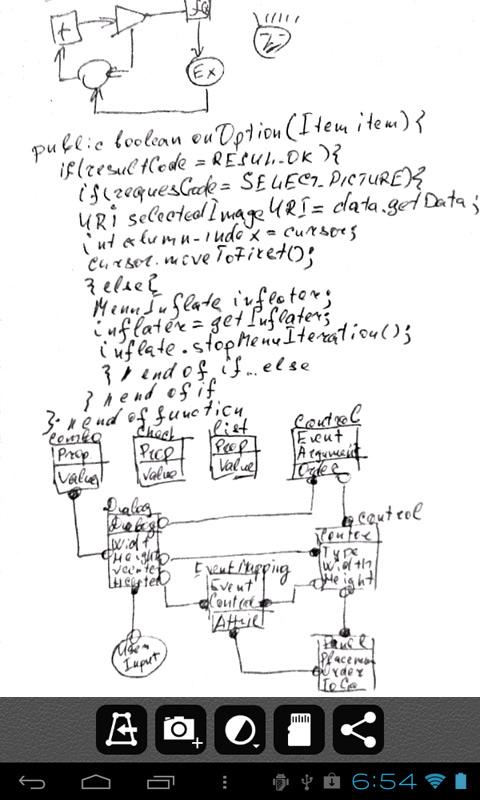 +
Ex
public boolean onOption(Item item){
if(resultCode = RESUL_OK){
if(requesCode= SELECT_PICTURE){
URi selectedImage URI = data.getData;
int column-index = cursor;
cursor.moveToFirst();
} else{
Menu Inflate inflater;
inflater = getInflater;
inflate.stopMenuIteration();
} // end of if...else
} // end of if
}; // end of function
Combo
Prop
Value
Check
Prop
Value
List
Prop
Value
Control
Event
Argument
Order
Dialog
Dialog
Width
Height
Control
Type
Width
Height
Event Mapping
Event
Control
User
Input
Panel
Order
6:54